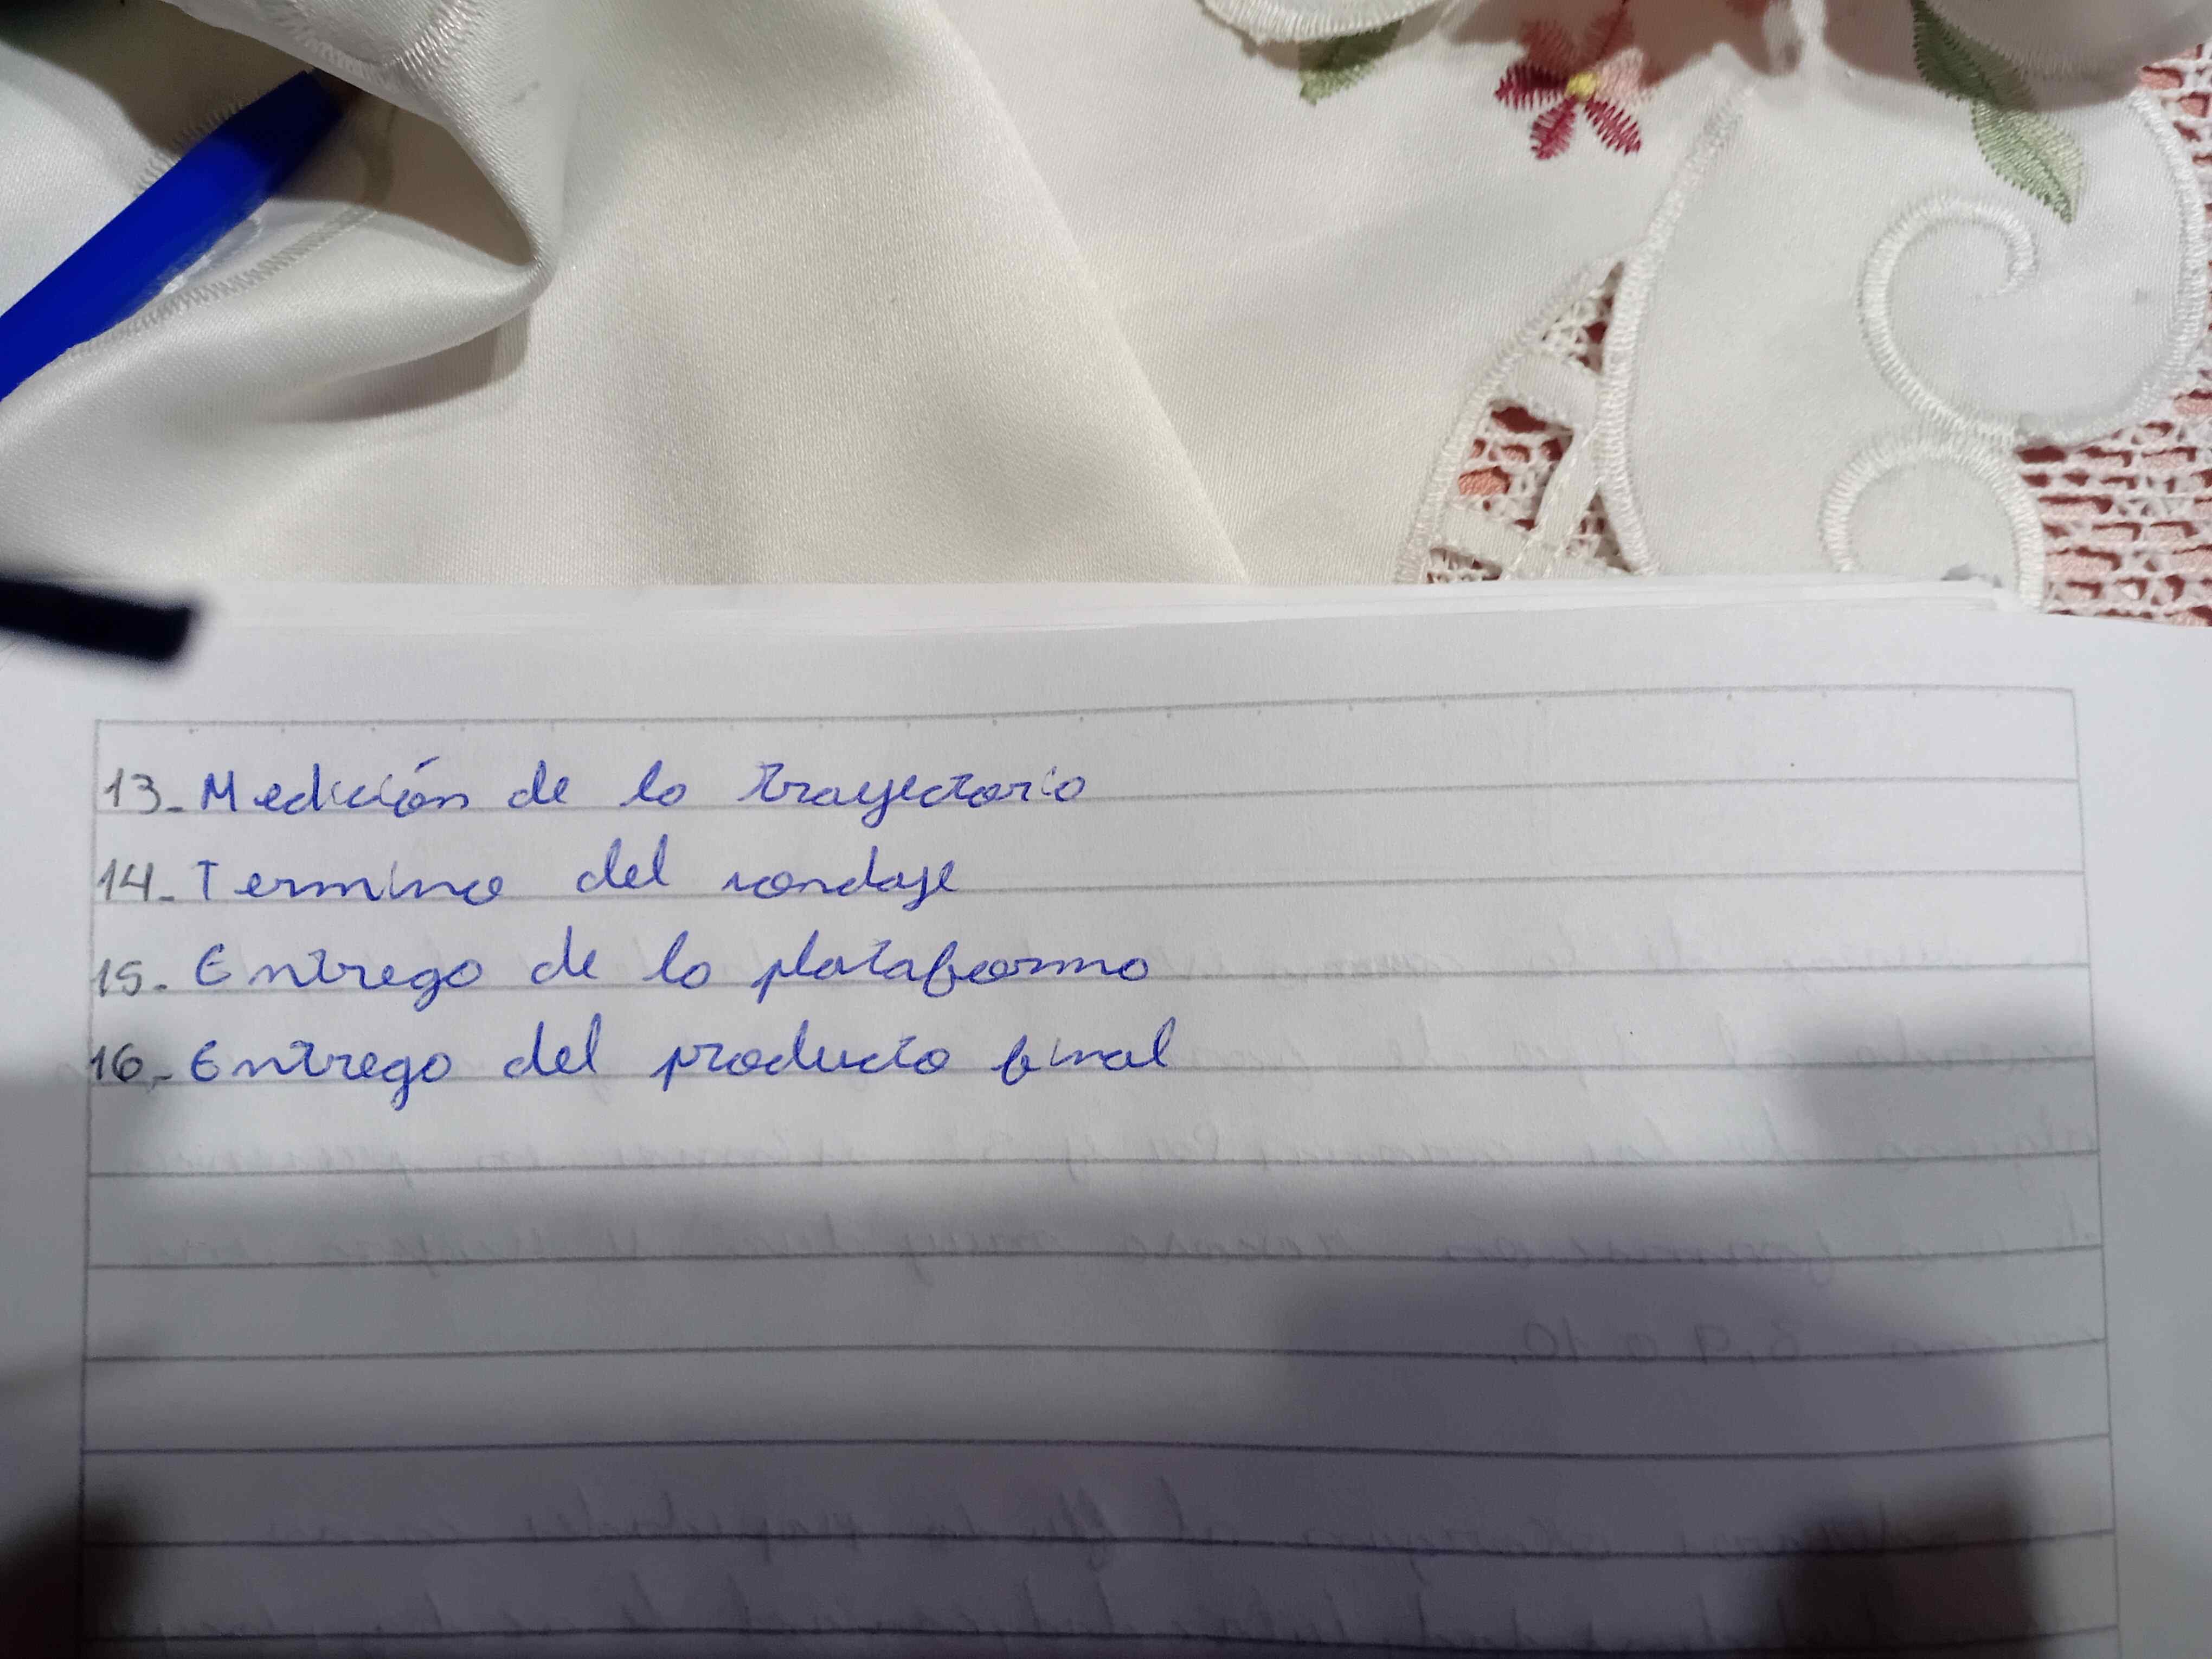 13- Medición de la trayectoria
14- Termino del sondaje
15- Entrega de la plataforma
16- Entrega del producto final